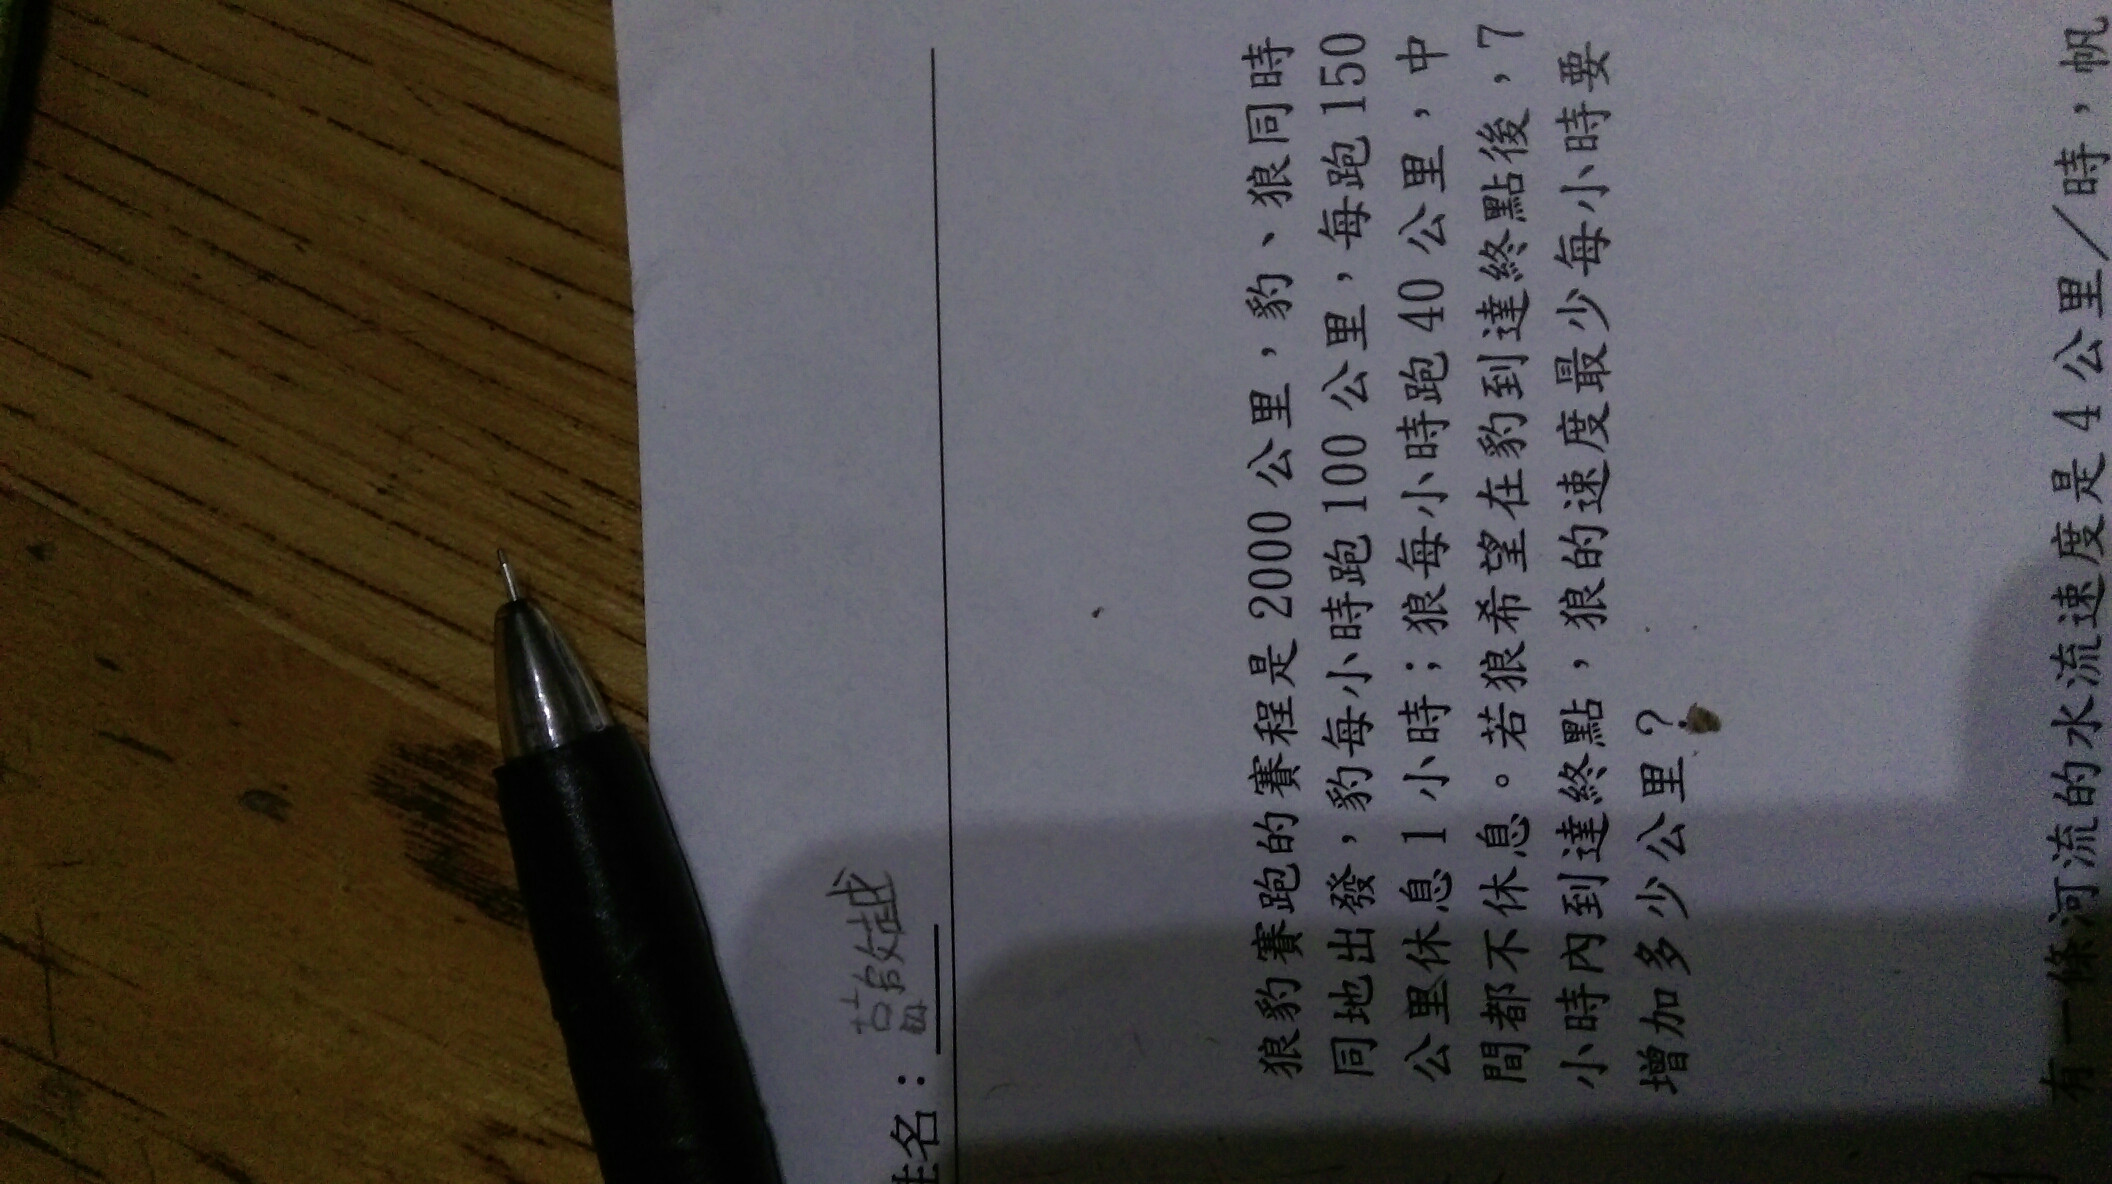 姓名：
狼豹賽跑的賽程是2000公里，豹、狼同時
同地出發，豹每小時跑100公里，每跑150
公里休息1小時；狼每小時跑40公里，中
間都不休息。若狼希望在豹到達終點後，7
小時內到達終點，狼的速度最少每小時要
增加多少公里？
有一條河流的水流速度是4公里／時，帆